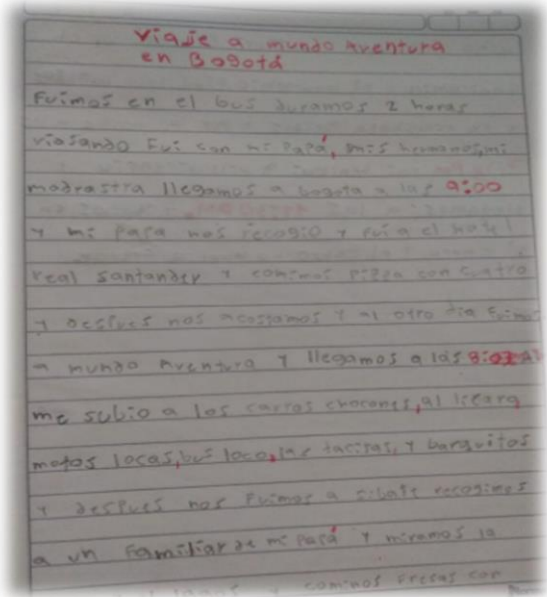 Viaje a mundo Aventura
en Bogotá
Fuimos en el bus duramos 2 horas
viajando Fui con mi Papá, mis hermanos, mi
madrastra llegamos a bogota a las 9:00
y mi Papa nos recogio y fui a el hotel
real santander y comimos Pizza con cuatro
y despues nos acostamos y al otro dia Fuimos
a mundo Aventura y llegamos a las
me subio a los carros chocones, al
motos locas, bus loco, las tacitas, y barquitos
y despues nos Fuimos a sibate recogimos
a un Familiar de mi Papá y miramos la
y comimos Fresas con